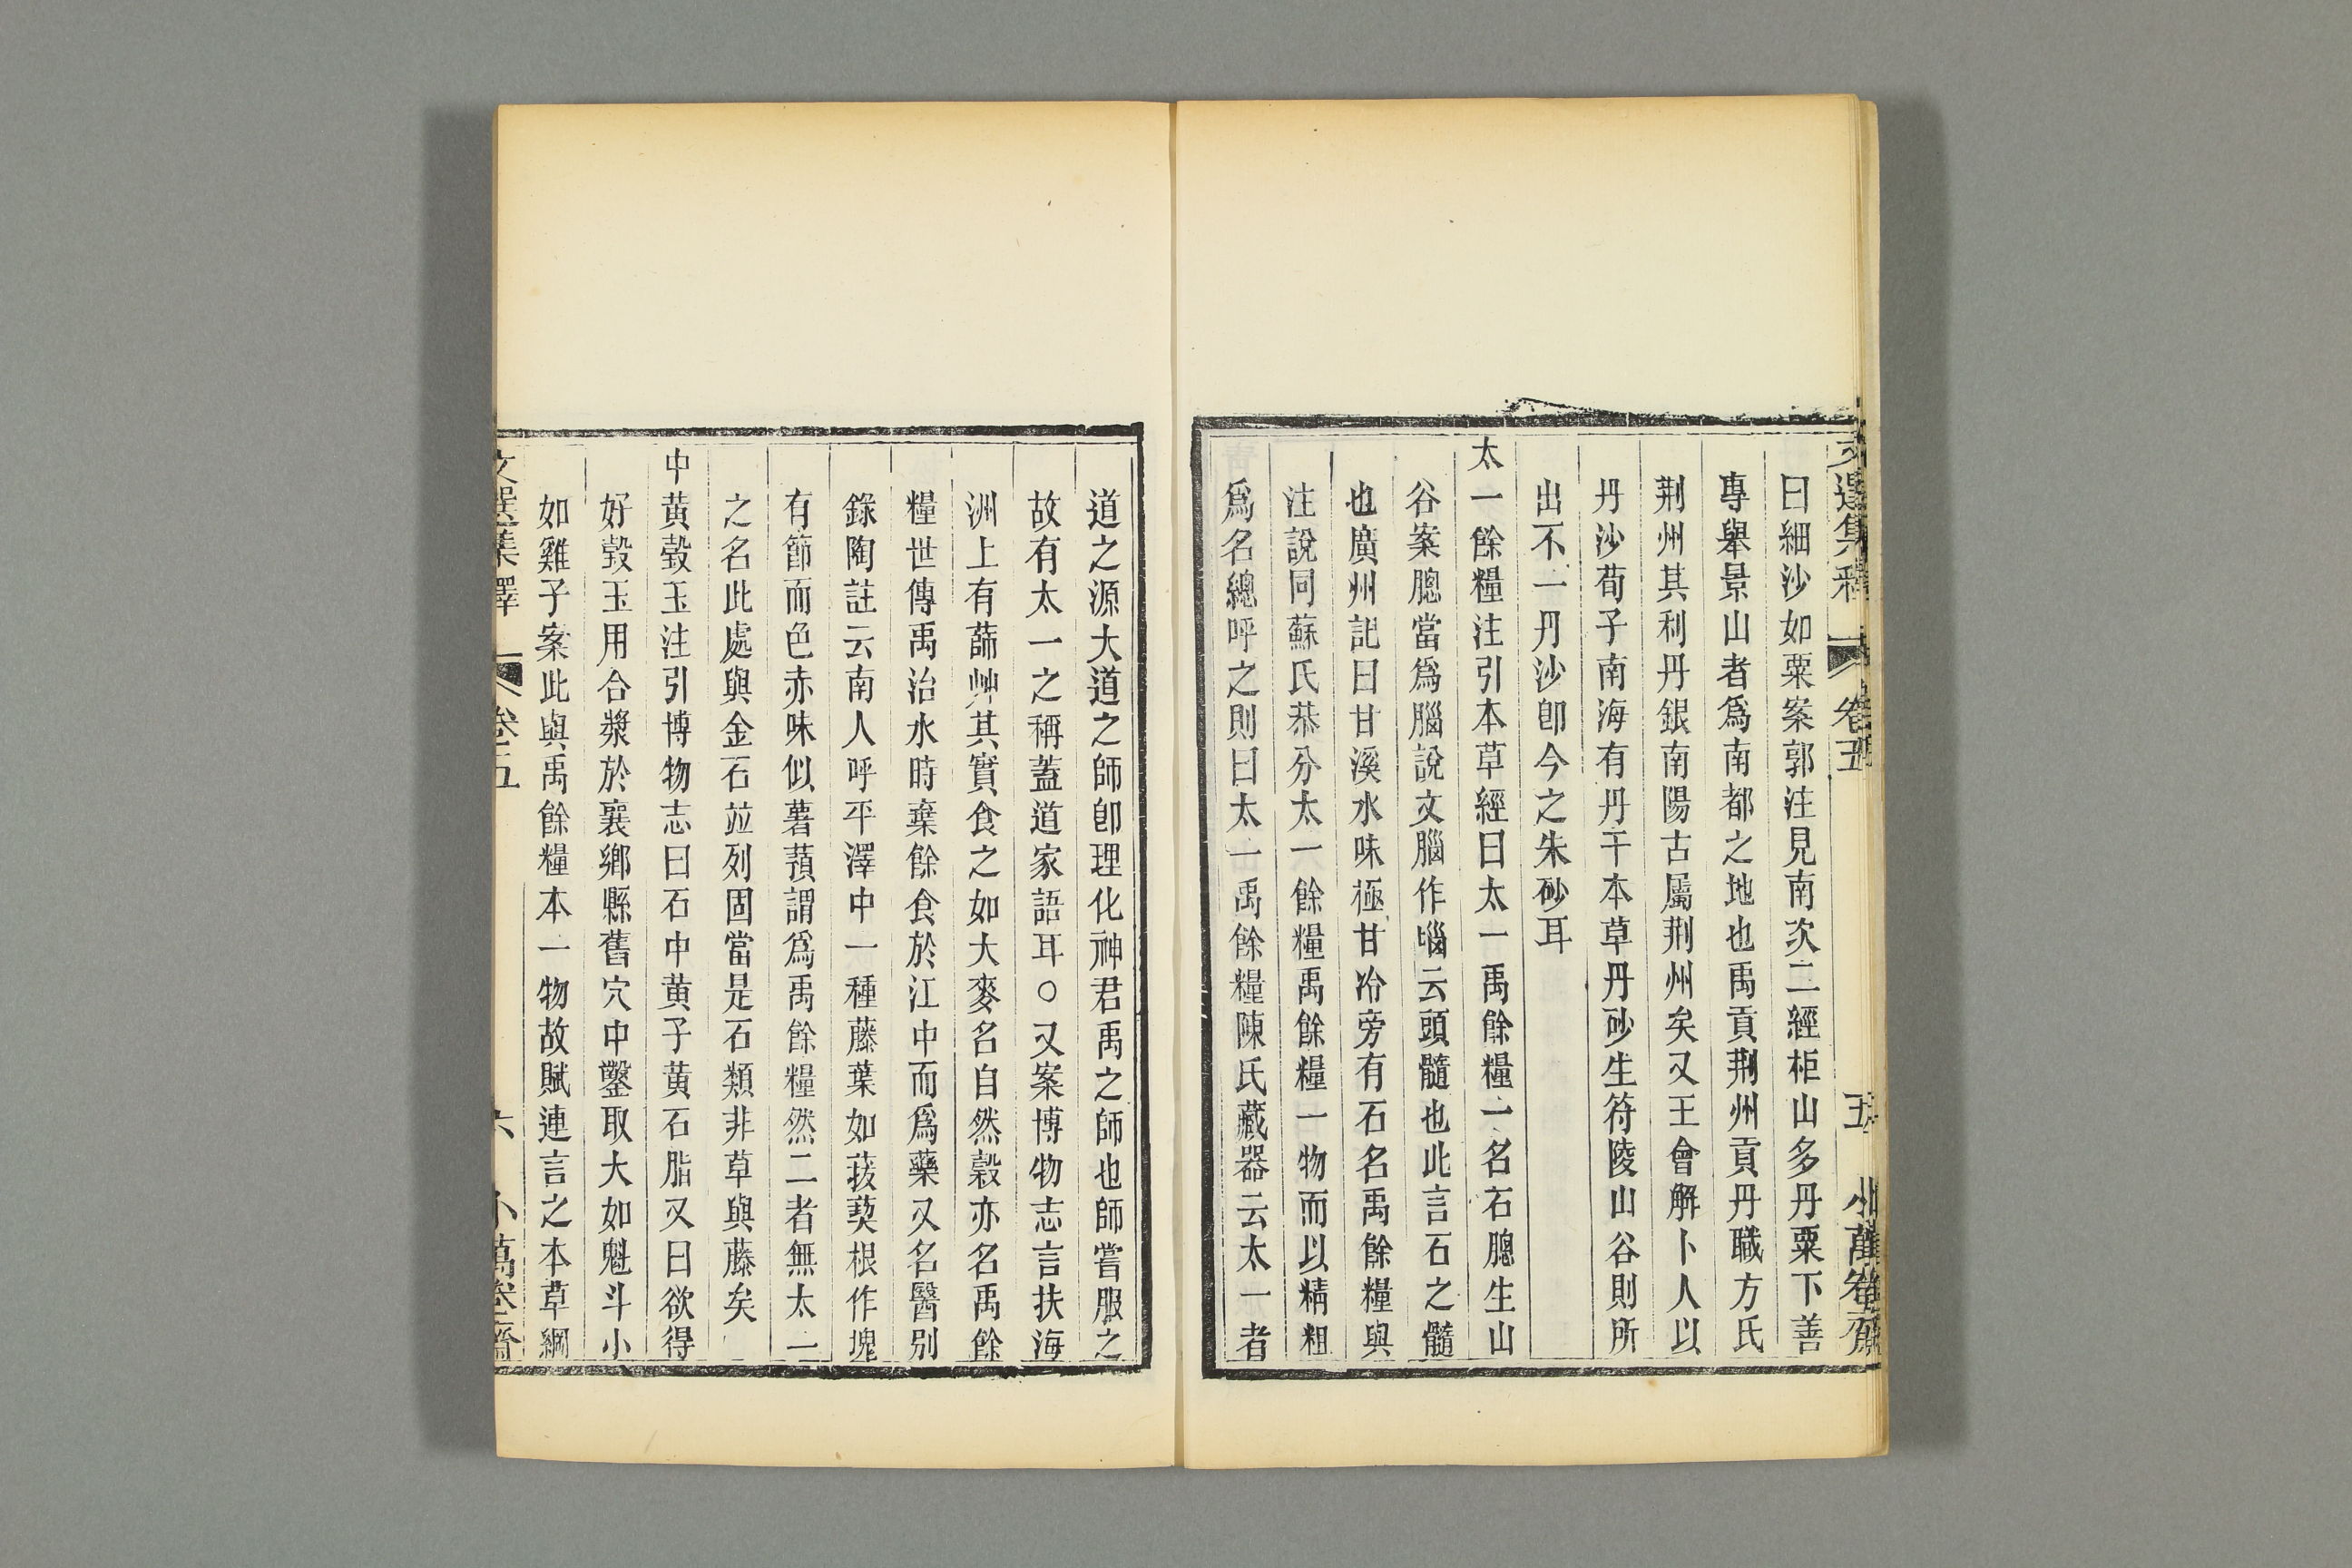 文選集釋 卷五 五 小萬卷齋
曰細沙如粟案郭注見南次二經柜山多丹粟下善
專舉景山者爲南都之地也禹貢荆州貢丹職方氏
荆州其利丹銀南陽古屬荆州矣又王會解卜人以
丹沙荀子南海有丹干本草丹砂生符陵山谷則所
出不一丹沙卽今之朱砂耳
太一餘糧注引本草經曰太一禹餘糧一名石䐉生山
谷案䐉當爲腦說文腦作𡿺云頭髓也此言石之髓
也廣州記曰甘溪水味極甘冷旁有石名禹餘糧與
注說同蘇氏恭分太一餘糧禹餘糧一物而以精粗
爲名總呼之則曰太一禹餘糧陳氏藏器云太一者
道之源大道之師卽理化神君禹之師也師嘗服之
故有太一之稱蓋道家語耳○又案博物志言扶海
洲上有蒒艸其實食之如大麥名自然穀亦名禹餘
糧世傳禹治水時棄餘食於江中而爲藥又名醫別
錄陶註云南人呼平澤中一種藤葉如菝葜根作塊
有節而色赤味似薯蕷謂爲禹餘糧然二者無太一
之名此處與金石竝列固當是石類非草與藤矣
中黃瑴玉注引博物志曰石中黃子黃石脂又曰欲得
好瑴玉用合漿於襄鄉縣舊穴中鑿取大如魁斗小
如雞子案此與禹餘糧本一物故賦連言之本草綱
文選集釋 卷五 六 小萬卷齋